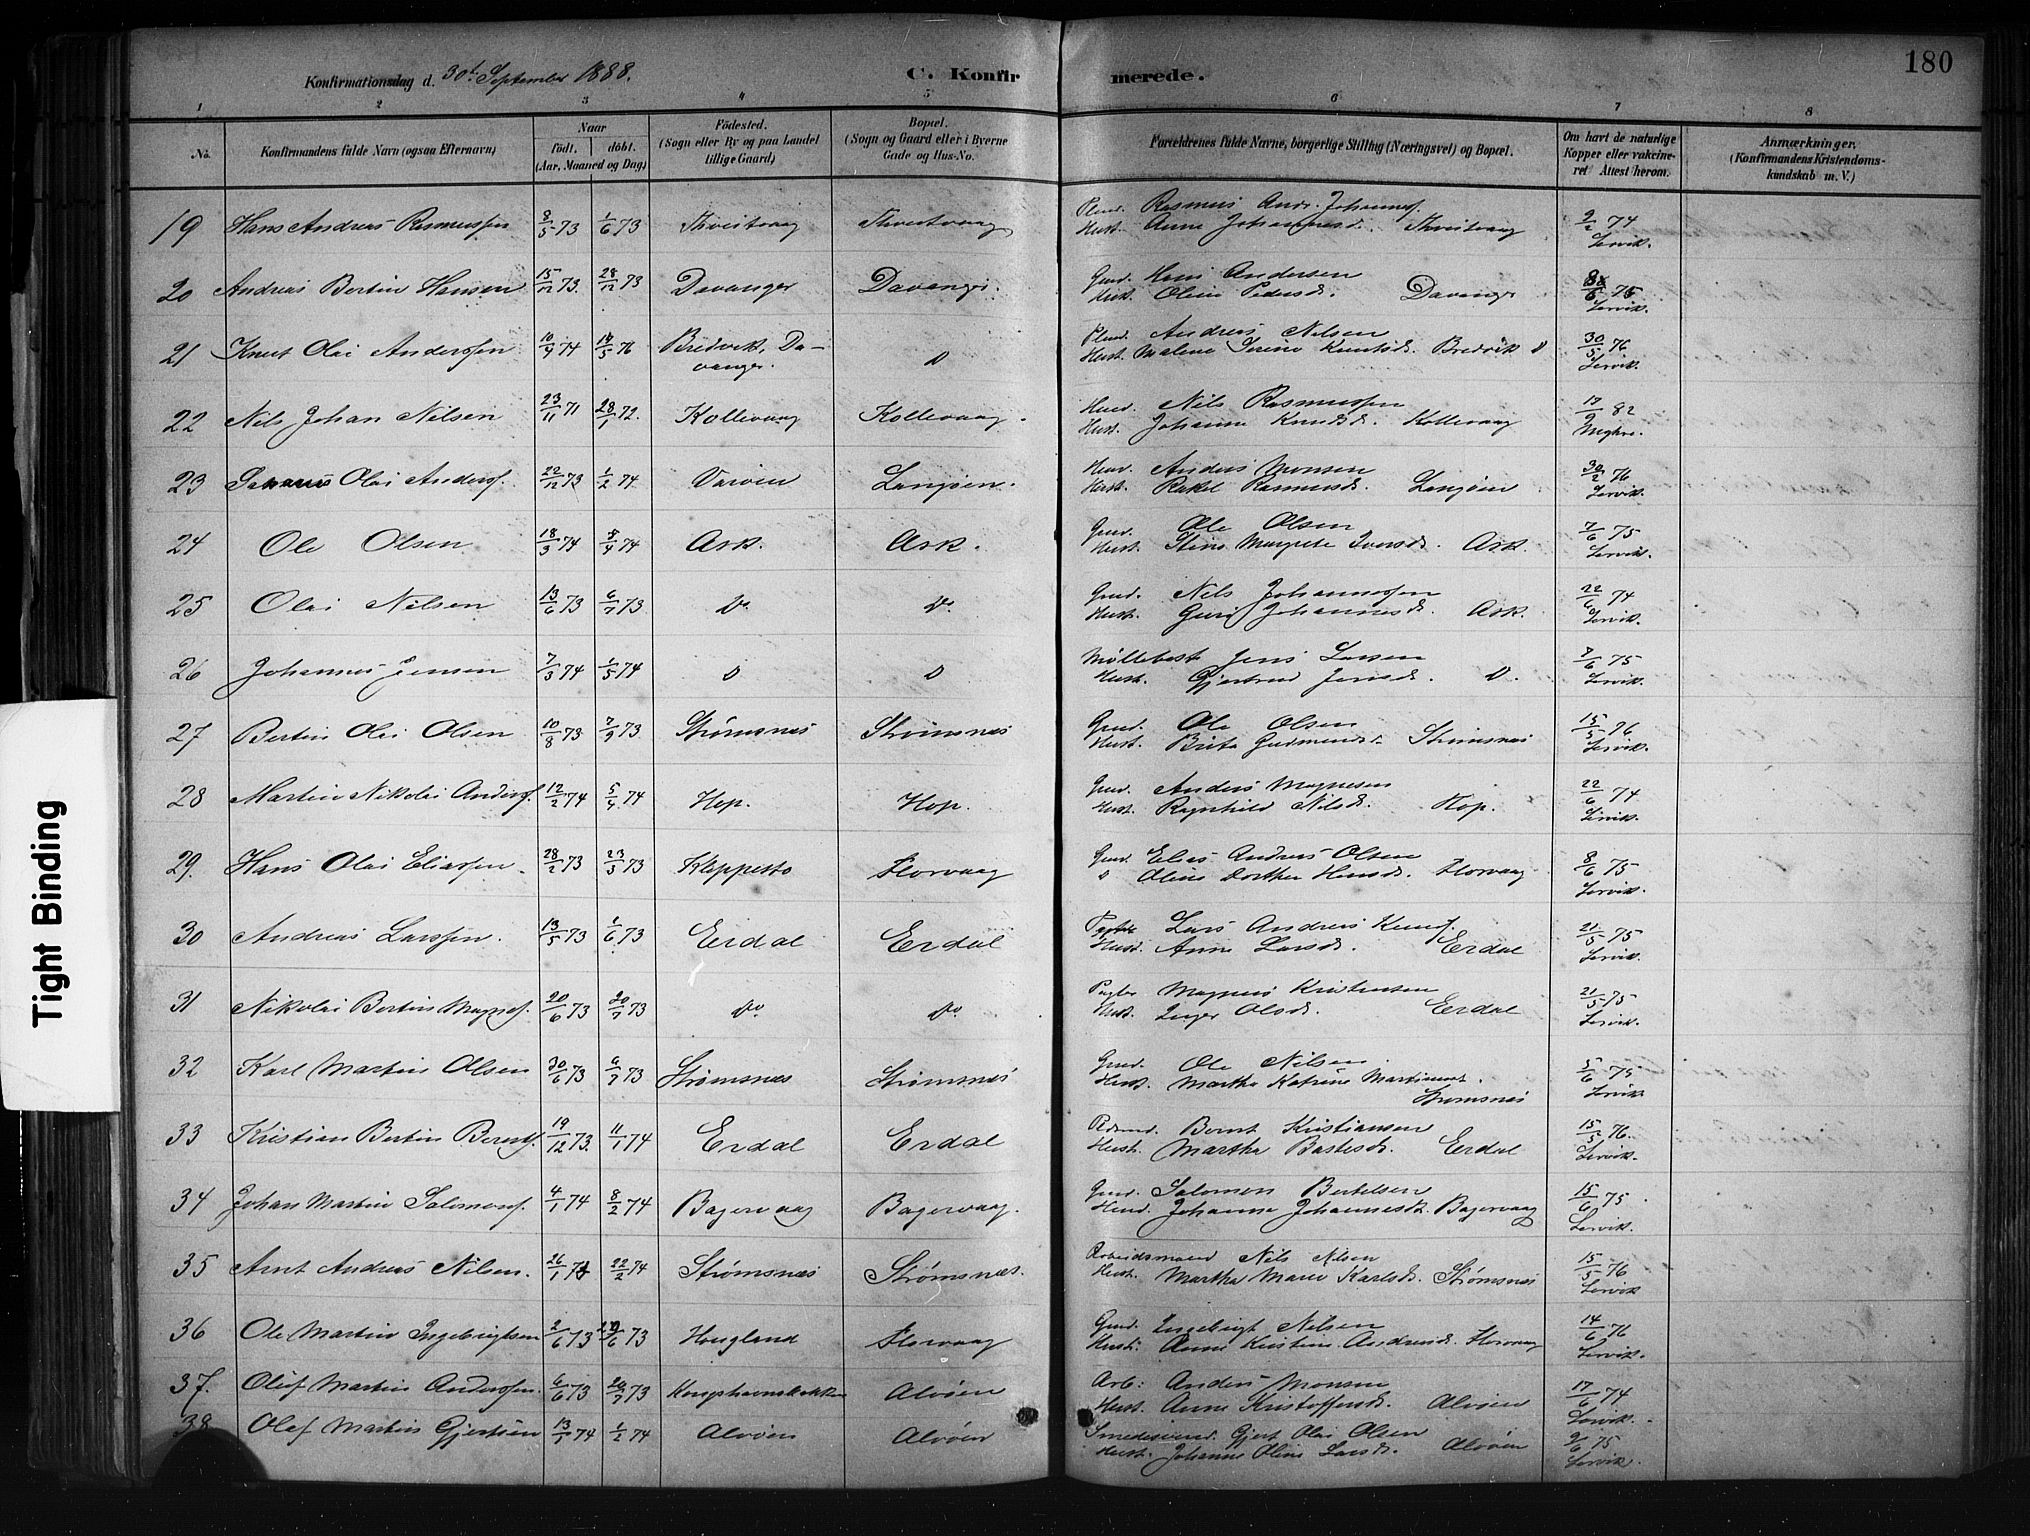 180
Konfirmationsdag d. 30t September 1888. C. Konfirmerede.
1 2 3 4 5 6 7 8
No. Konfirmandens fulde Navn (ogsaa Efternavn) Naar født. døbt. (Aar, Maaned og Dag) Fødested. (Sogn eller By og paa Landet tillige Gaard) Bopæl. (Sogn og Gaard eller i Byerne Gade og Hus-No. Forældrenes fulde Navne, borgerlige Stilling (Næringsvei) og Bopæl. Om havt de naturlige Kopper eller vakcineret Attest herom. Anmærkninger. (Konfirmandens Kristendomskundskab m. V.)
19 Hans Andreas Rasmussen 8/5 73 1/6 73 Thveitvaag Thveitvaag Rasmus Andr. Johannes. 2/2 74
Hust. Anne Johannesd. Thveitvaag Lervik.
20 Andreas Bertin Hansen 15/12 73. 28/12 73 Davanger Davanger. Grd. Hans Andersen 75
Hust. Oline Pedersd. Davanger Lervik.
21 Knut Olai Anderssen 10/4 74 14/5 76 Bredvik, Davanger. D Andreas Nilsen 30/5 76
Hust. Malene Serine Knutsd. Bredvik D Lervik.
22 Nils Johan Nilsen 23/11 71 28/1 72. Kollevaag Kollevaag. Nils Rasmussen 82
Hust. Johanne Knudsd. Kollevaag
23 Olai Anders. 22/12 73 1/2 74 Varøen Langøen. Anders Monsen 76
Hust. Rakel Rasmusd. Langøen Lervik.
24 Ole Olsen 18/3 74 5/4 74 Ask. Ask. Grd. Ole Olsen 7/6 75
Hust. Stine Margrete Iversd. Ask. Lervik.
25 Olai Nilsen 13/6 73 6/7 73 Do Do Grd. Nils Johannessen 22/6 74
Hust. Guri Johannesd. Ask. Lervik.
26 Johannes Jensen 7/3 74 1/5 74 D D Jens Larsen 7/6 75
Hust. Gjertrud Jensd. D. Lervik.
27 Bertin Olai Olsen 10/8 73 7/9 73 Strømsnæs Strømsnæs Grd. Ole Olsen 15/5 76
Hust. Brita Gudmundsd. Strømsnæs Lervik.
28 Martin Nikolai Anders. 12/2 74 5/4 74 Hop. Hop. Grd. Anders Magnesen 22/6 74
Hust. Ragnhild Nilsd. Hop. Lervik.
29. Hans Olai Eliassen. 28/2 73 23/3 73 Kleppestø Florvaag Grd. Elias Andreas Olsen 8/6 75
D Oline Dorthea Hansd. Florvaag Lervik.
30 Andreas Larssen. 13/5 73 1/6 73 Erdal Erdal Lars Andreas Knuds. 21/5 75
Hust. Anne Larsd. Erdal Lervik.
31 Nikolai Bertin Magnes. 20/6 73 20/7 73 Do Do Magnus Kristensen 21/5 75
Hust. Inger Olsd. Erdal Lervik.
32 Karl Martin Olsen 30/6 73 6/7 73 Strømsnæs Strømsnæs Grd. Ole Nilsen. 5/6 75
Hust. Martha Katrine
Strømsnæs Lervik
33 Kristian Bertin Berents. 19/12 73. 11/1 74 Erdal Erdal Bernt Kristiansen 15/5 76.
Hust. Martha Bastesd. Erdal Lervik.
34 Johan Martin Salomons. 4/1 74 8/2 74 Bagervaag Bagervaag. Grd. Salomon Bertelsen 15/6 75
Johanna Johannesd. Bagervaag Lervik.
35 Arnt Andreas Nilsen. 26/1 74 22/2 74 Strømsnæs Strømsnæs. Arbeidsmand Nils Nilsen 15/5 76
Hust. Martha Marie Karlsd. Strømsnæs Lervik
36 Ole Martin Ingebrigtsen 2/6 73 /6 73 Hougland Florvaag Grd. Ingebrigt Nilsen 14/6 76
Hust. Anne Kristine Andreasd. Florvaag Lervik.
37. Oluf Martin Anderssen. 6/6 73 20/7 73 Alvøen Arb: Anders Monsen 17/6 74
Hust. Anne Kristoffersd. Alvøen Lervik.
38 Olaf Martin Gjertsen 13/1 74 1/2 74 Alvøen Alvøen Smedesvend. Gjert Olai Olsen 9/6 75
Hust. Johanne Oline Larsd. Alvøen Lervik.
Tight Binding